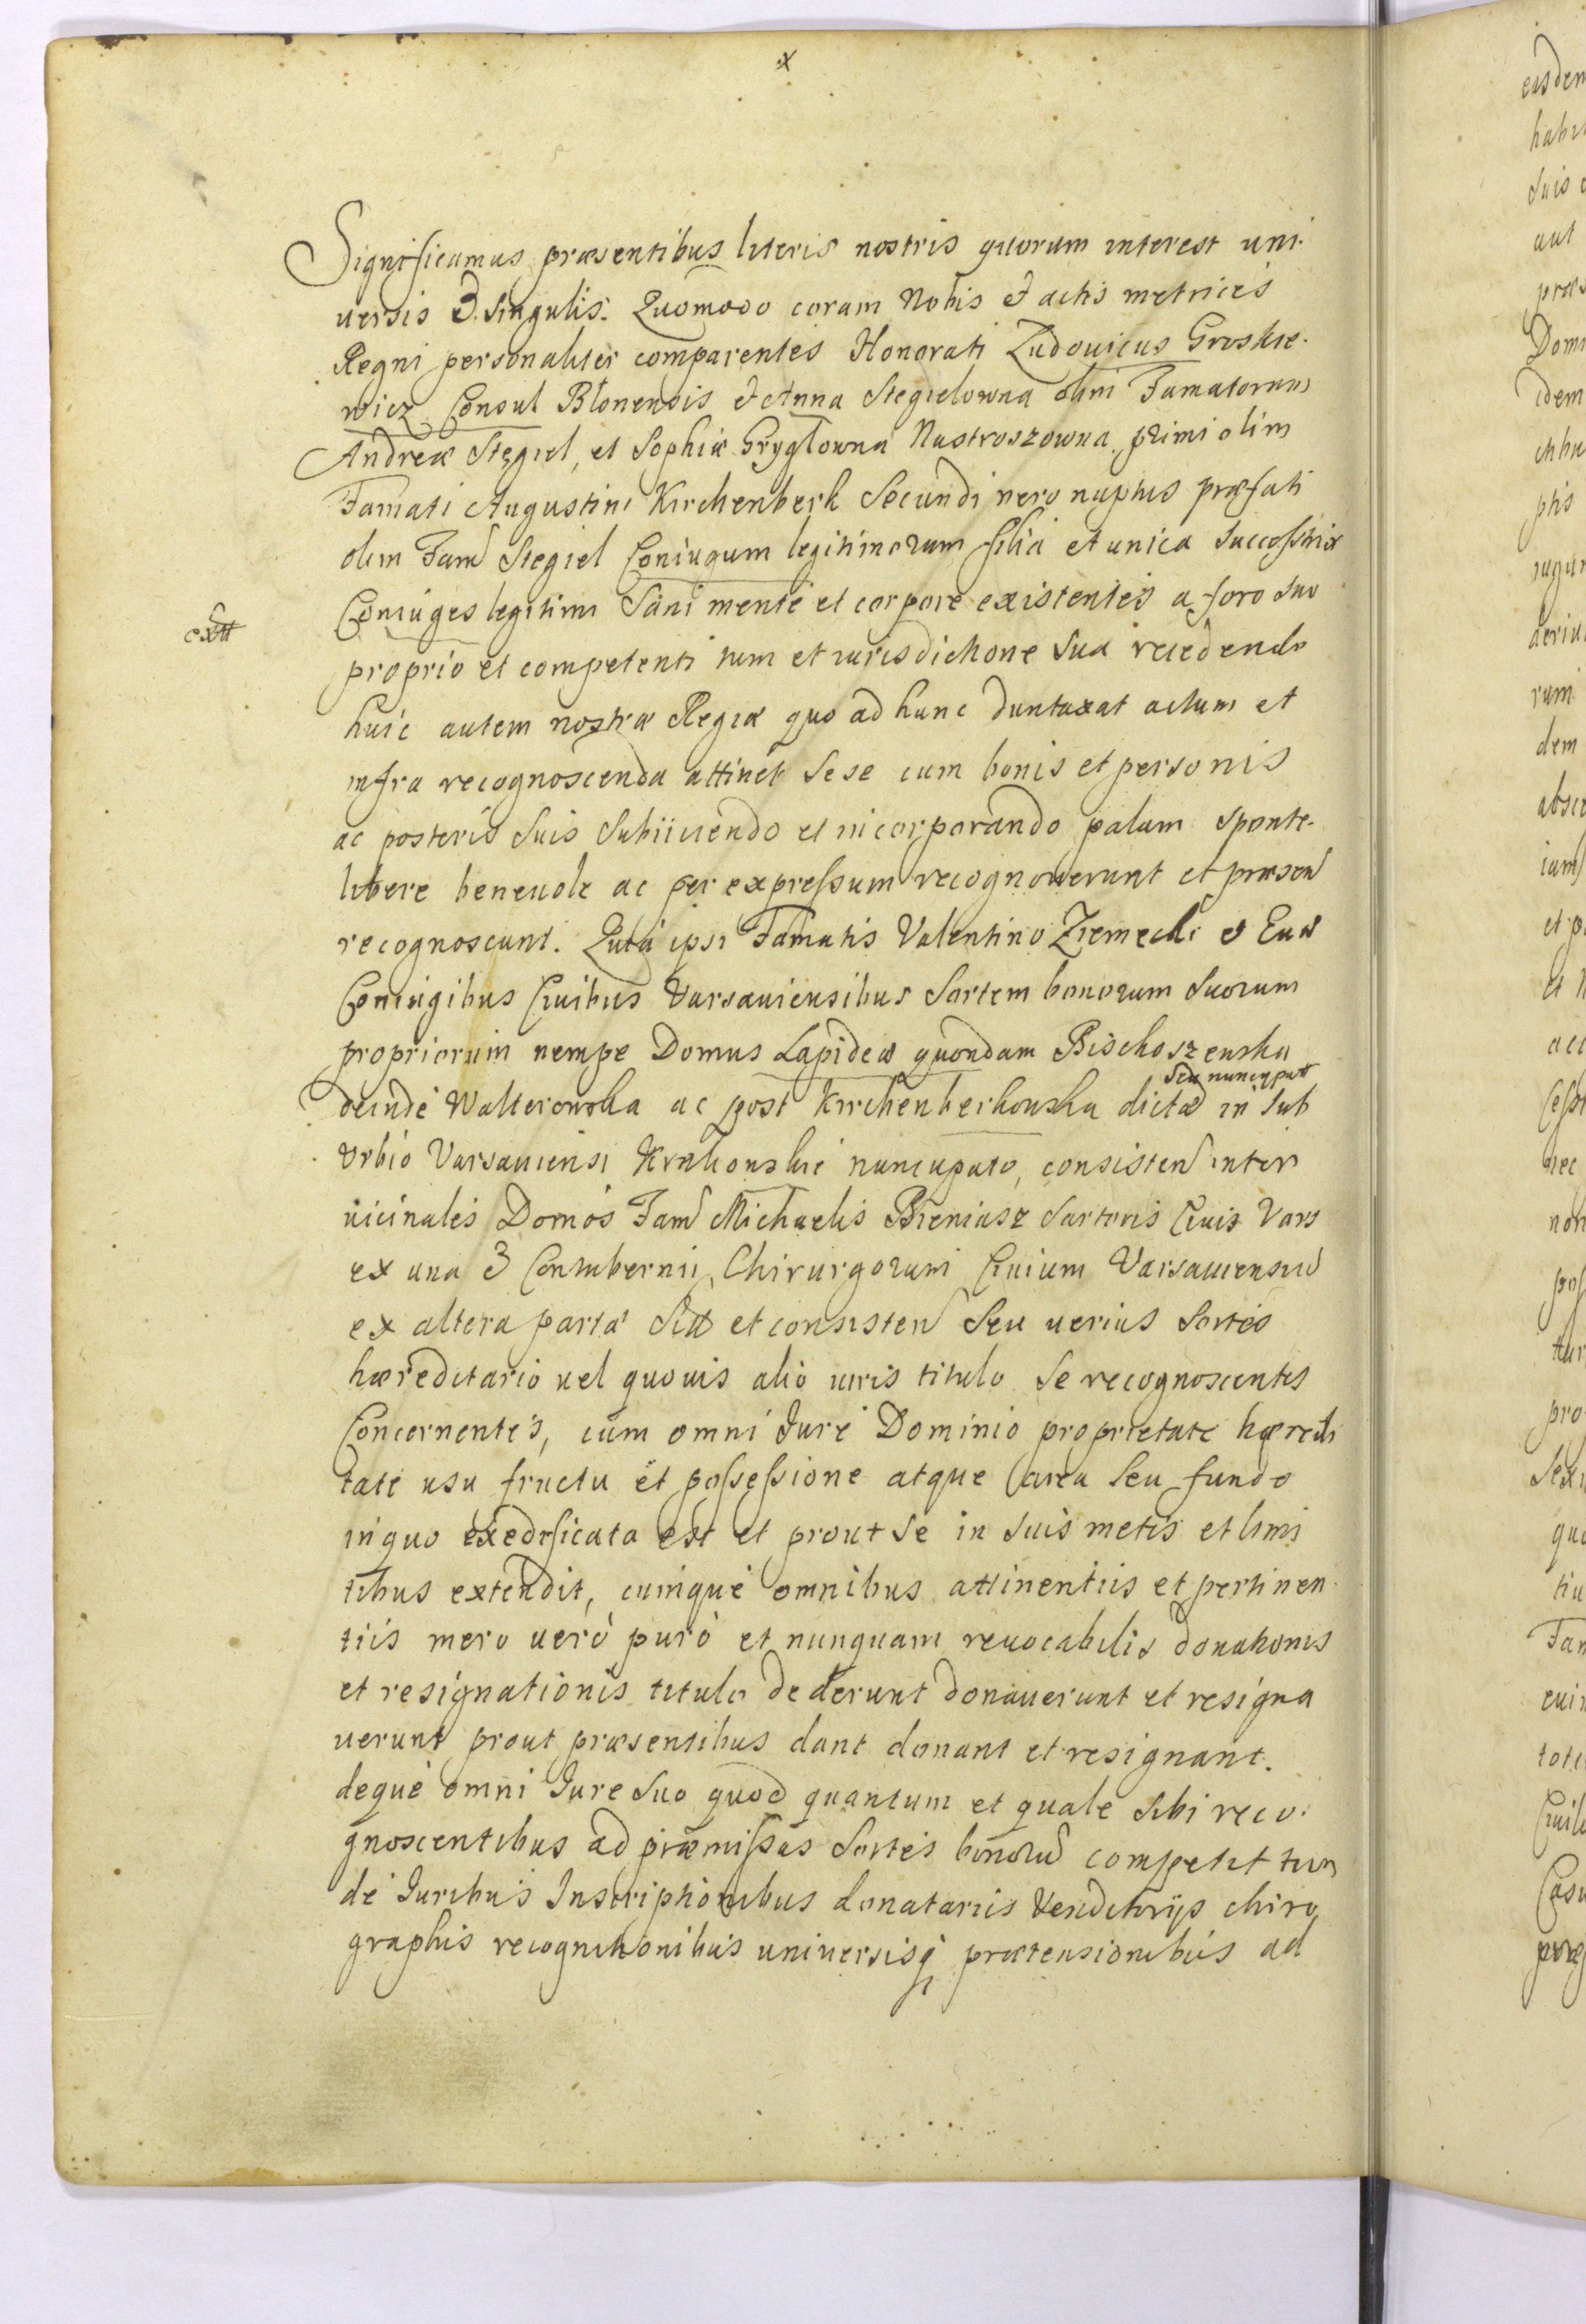 x
Significamus præsentibus literis nostris quorum interest uni-
uersis & singulis. Quomodo coram Nobis & actis metrices
Regni personaliter comparentes Honorati Ludouicus Groskie-
wicz Consul Blonensis & Anna Stegielowna olim Famatorum
Andreæ Stegiel, et Sophiæ Gryglowna Nastroszowna, primi olim
Famati Augustini Kirchenberk Secundi vero nuptus præfati
olim Fam Stegiel Coniugum legitimorum filia et unica successtrix
Coniuges legitimi Sani mente et corpore existentes a foro suo
extt
proprio et competenti tum et iurisdictione sua recedendo
huic autem nostræ Regiæ quo ad hunc duntaxat actum et
infra recognoscenda attinet Sese cum bonis et personis
ac posteris suis subiiciendo et incorporando palam sponte-
libere beneuole ac per expressum recognouerunt et præsen
recognoscunt. Quia ipsi Famatis Valentino Ziemecki & Euæ
Coniugibus Ciuibus Varsauiensibus Sortem bonorum suorum
propriorum nempe Domus Lapideæ quondam Bischoszenska
seu nuncupatt
deinde Walterowska ac post Kirchenberkowska dictæ in Sub
Vrbio Varsauiensi Krakowskie nuncupato, consisten inter
uicinales Domos Fam Michaelis Bieniasz Sartoris Ciuis Vars
ex una & Contubernii Chirurgorum Ciuium Varsauiensiu
ex altera parta Sitt et consisten Seu uerius Sortes
hæreditario uel quouis alio iuris titulo Se recognoscentes
Concernentes, cum omni Jure Dominio proprietate hæredi
tate usu fructu et possessione atque area Seu fundo
in quo exedificata est et prout Se in suis metis et limi
tibus extendit, cumque omnibus attinentiis et pertinen-
tiis mero uero puro et nunquam reuocabilis donationis
et resignationis titulo dederunt donauerunt et resigna
uerunt prout præsentibus dant donant et resignant.
deque omni Jure Suo quod quantum et quale Sibi reco-
gnoscentibus ad præmissas Sortes bonoru competit tum
de Juribus Inscriptionibus donatariis Venditorijs chiro
graphis recognitionibus uniuersisq prætensionibus ad